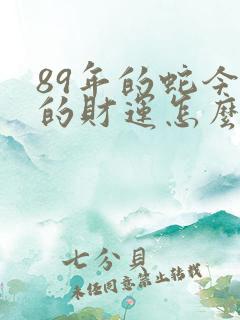 89年的蛇今
的財運怎麼
七分貝
未經同意禁止轉載